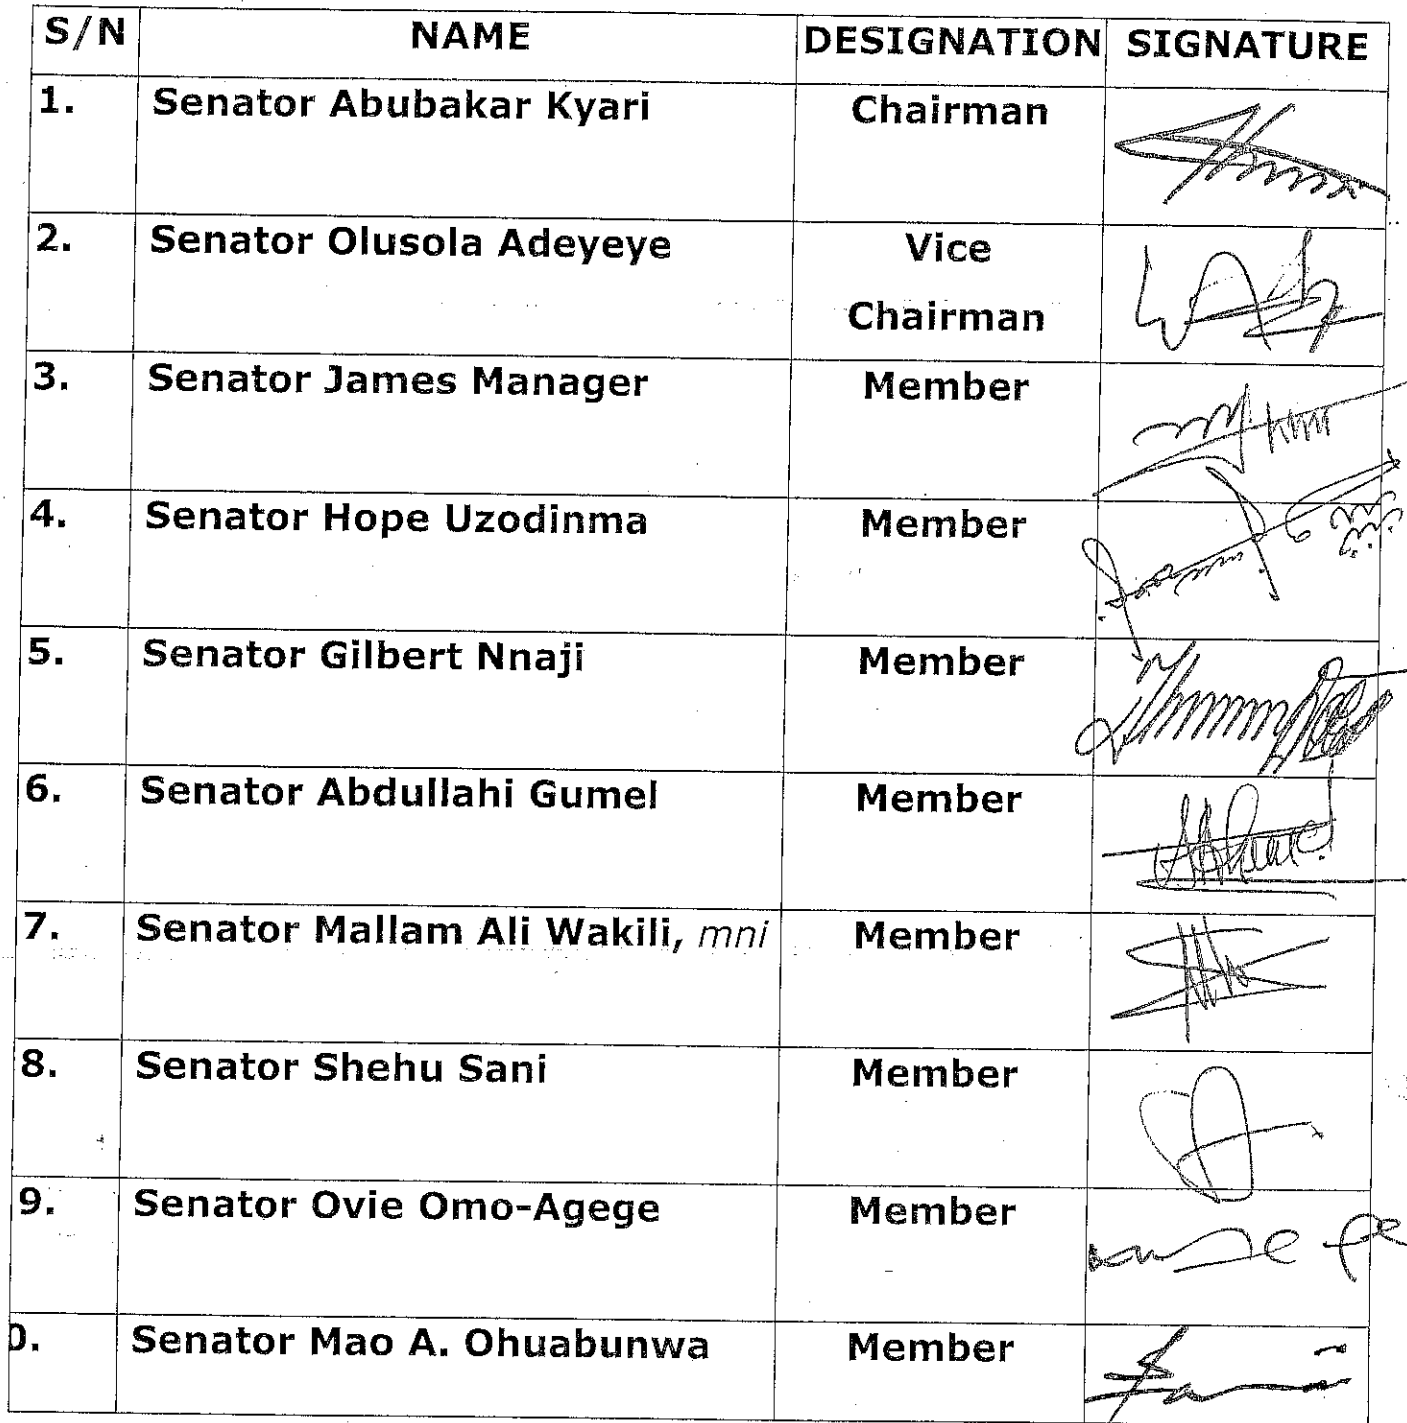 S/N NAME DESIGNATION SIGNATURE
1. Senator Abubakar Kyari Chairman
2. Senator Olusola Adeyeye Vice
Chairman
3. Senator James Manager Member
4. Senator Hope Uzodinma Member
5. Senator Gilbert Nnaji Member
6. Senator Abdullahi Gumel Member
7. Senator Mallam Ali Wakili, mni Member
8. Senator Shehu Sani Member
9. Senator Ovie Omo-Agege Member
0. Senator Mao A. Ohuabunwa Member